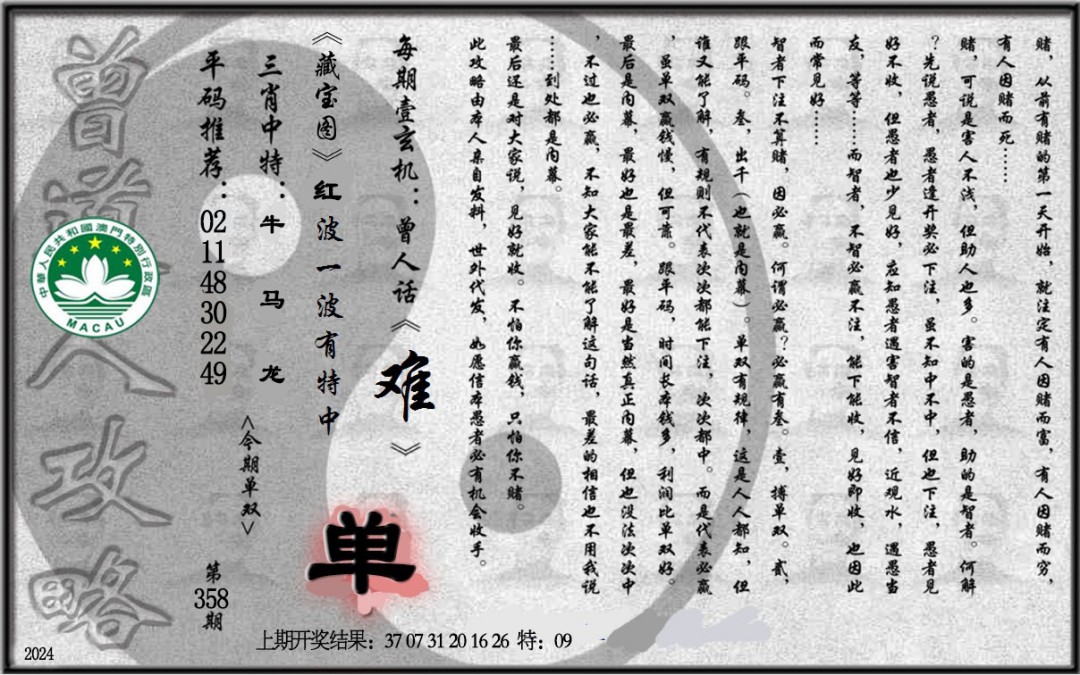 赌，从前有赌的第一天开始，就注定有人因赌而富，有人因赌而穷，
有人因赌而死……
赌，可说是害人不浅，但助人也多。害的是愚者，助的是智者。何解
？先说愚者，愚者逢开奖必下注，虽不知中不中，但也下注，愚者见
好不收，但愚者也少见好，应知愚者遇害智者不信，近观水，遇愚当
友，等等……而智者，不智必赢不注，能下能收，见好即收，也因此
而常见好……
智者下注不算赌，因必赢。何谓必赢？必赢有叁。壹，搏单双。贰，
跟平码。叁，出千（也就是内幕）。单双有规律，这是人人都知，但
谁又能了解，有规则不代表次次都能下注，次次都中。而是代表必赢
，虽单双赢钱慢，但可靠。跟平码，时间长本钱多，利润比单双好。
最后是内幕，最好也是最差，最好是当然真正内幕，但也没法次次中
，不过也必赢，不知大家能不能了解这句话，最差的相信也不用我说
……到处都是内幕。
最后还是对大家说，见好就收。不怕你赢钱，只怕你不赌。
此攻略由本人亲自发料，世外代发，如愿信本愚者必有机会收手。
每期壹玄机：曾人话《难》
《藏宝图》红波一波有特中
单
三肖中特：牛 马 龙
<今期单双>
平码推荐：02 11 48 30 22 49
第358期
曾道人攻略
中華人民共和國澳門特別行政區
MACAU
上期开奖结果：37 07 31 20 16 26 特：09
2024